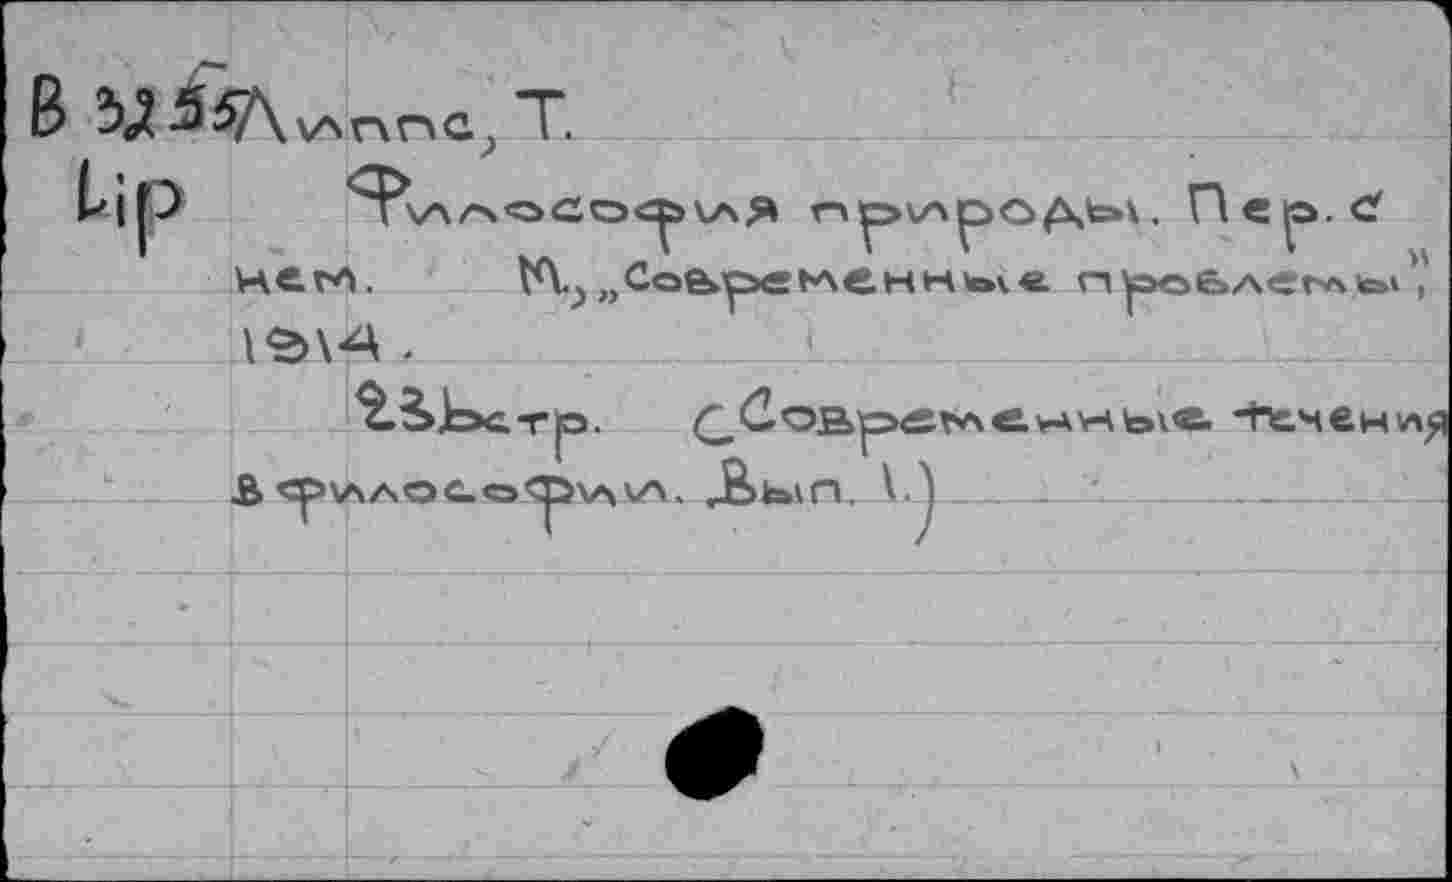 В Липпс, Т.
Lip Философия природы. Пер. с
нем. М., „Современные проблемы”,
1914.
стр. (Современные течения
в философии. Вып. 1.)